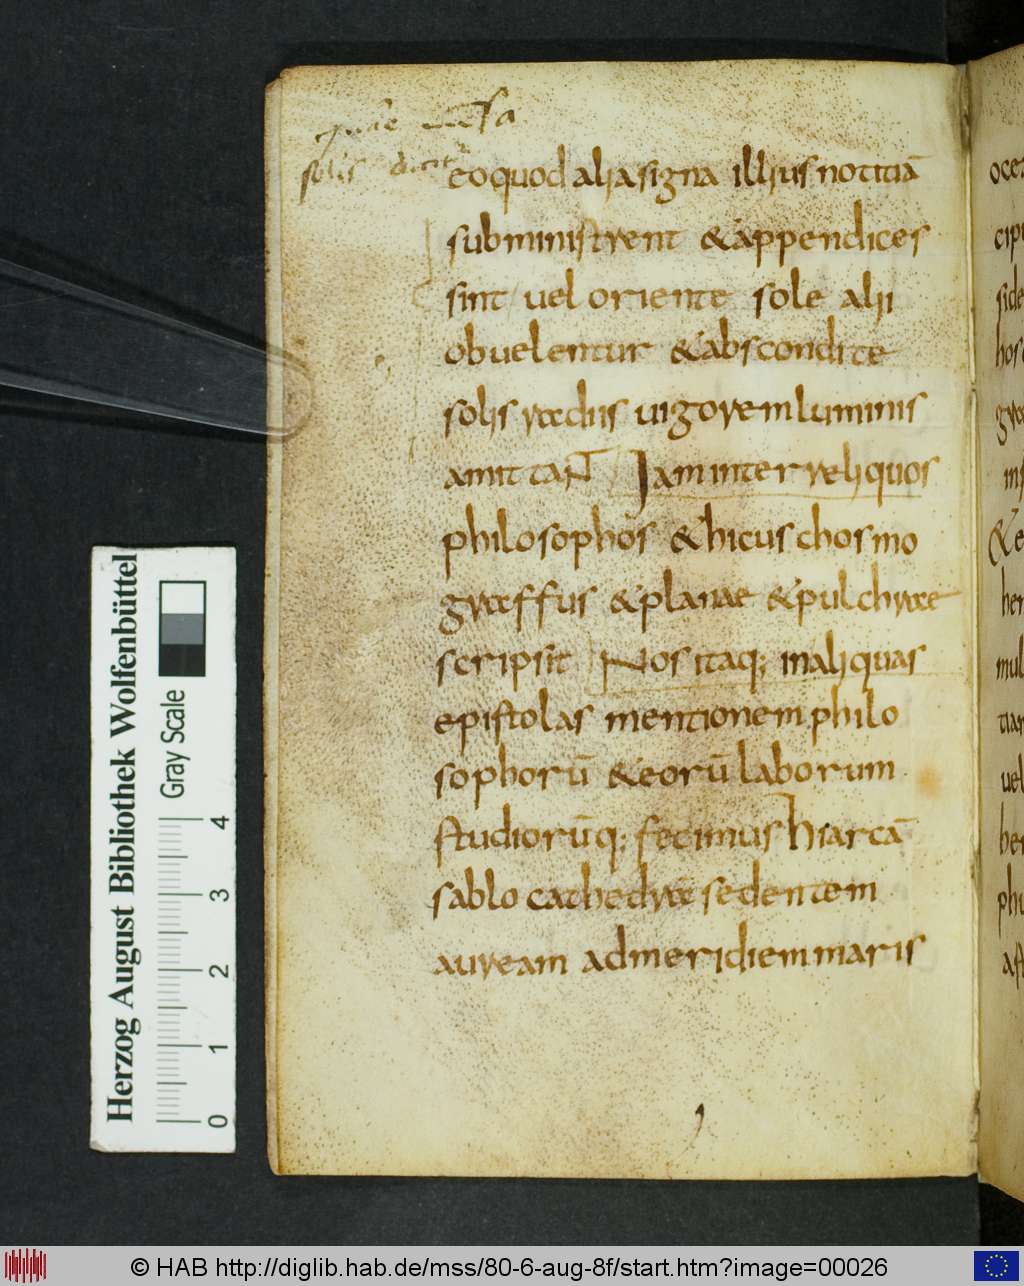 solis
eo quod alia signa illius notitiā
subministrent & appendices
sint vel oriente sole alii
obvelentur & abscondite
solis radiis vigorem luminis
amittant Iam inter reliquos
philosophos & hicus chosmo
graffus & plane & pulchrae
scripsit Nos itaq; in aliquas
epistolas mentionem philo
sophorū & eorū laborum
studiorūq; fecimus hiarcā
sablo cathedra sedentem
auream ad meridiem maris
Herzog August Bibliothek Wolfenbüttel
Gray Scale
0 1 2 3 4
© HAB http://diglib.hab.de/mss/80-6-aug-8f/start.htm?image=00026